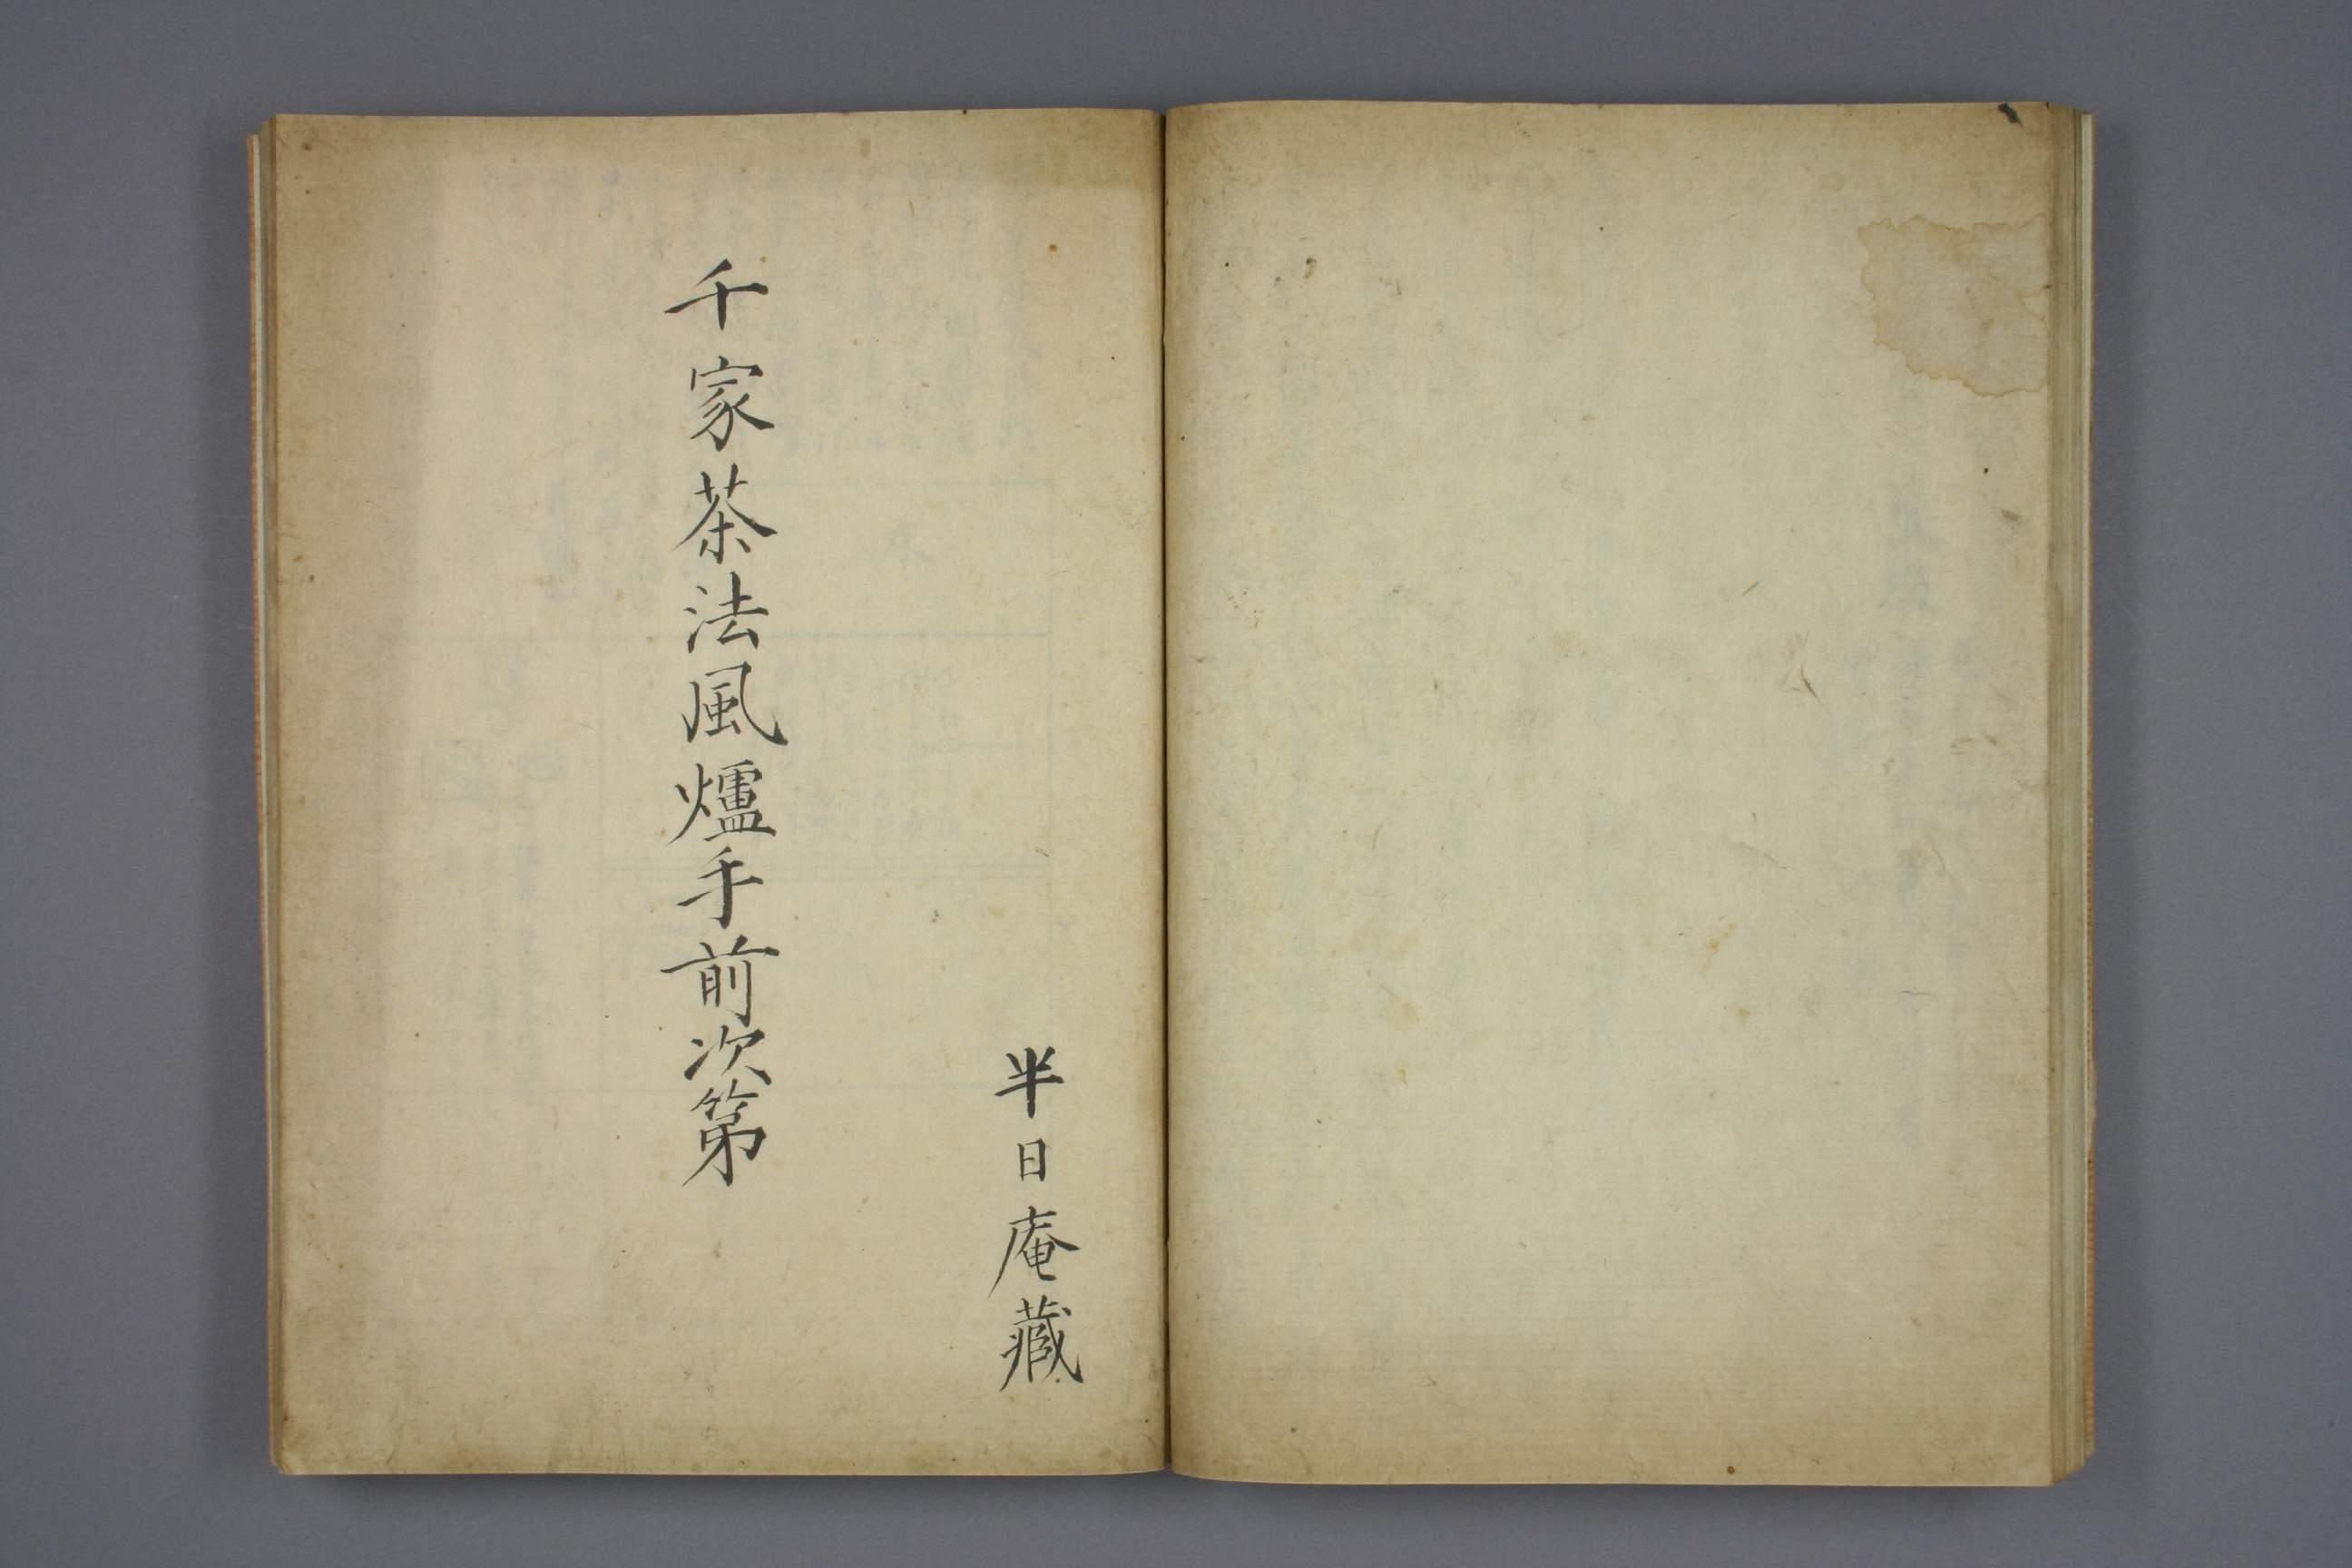 半日庵藏
千家茶法風爐手前次第